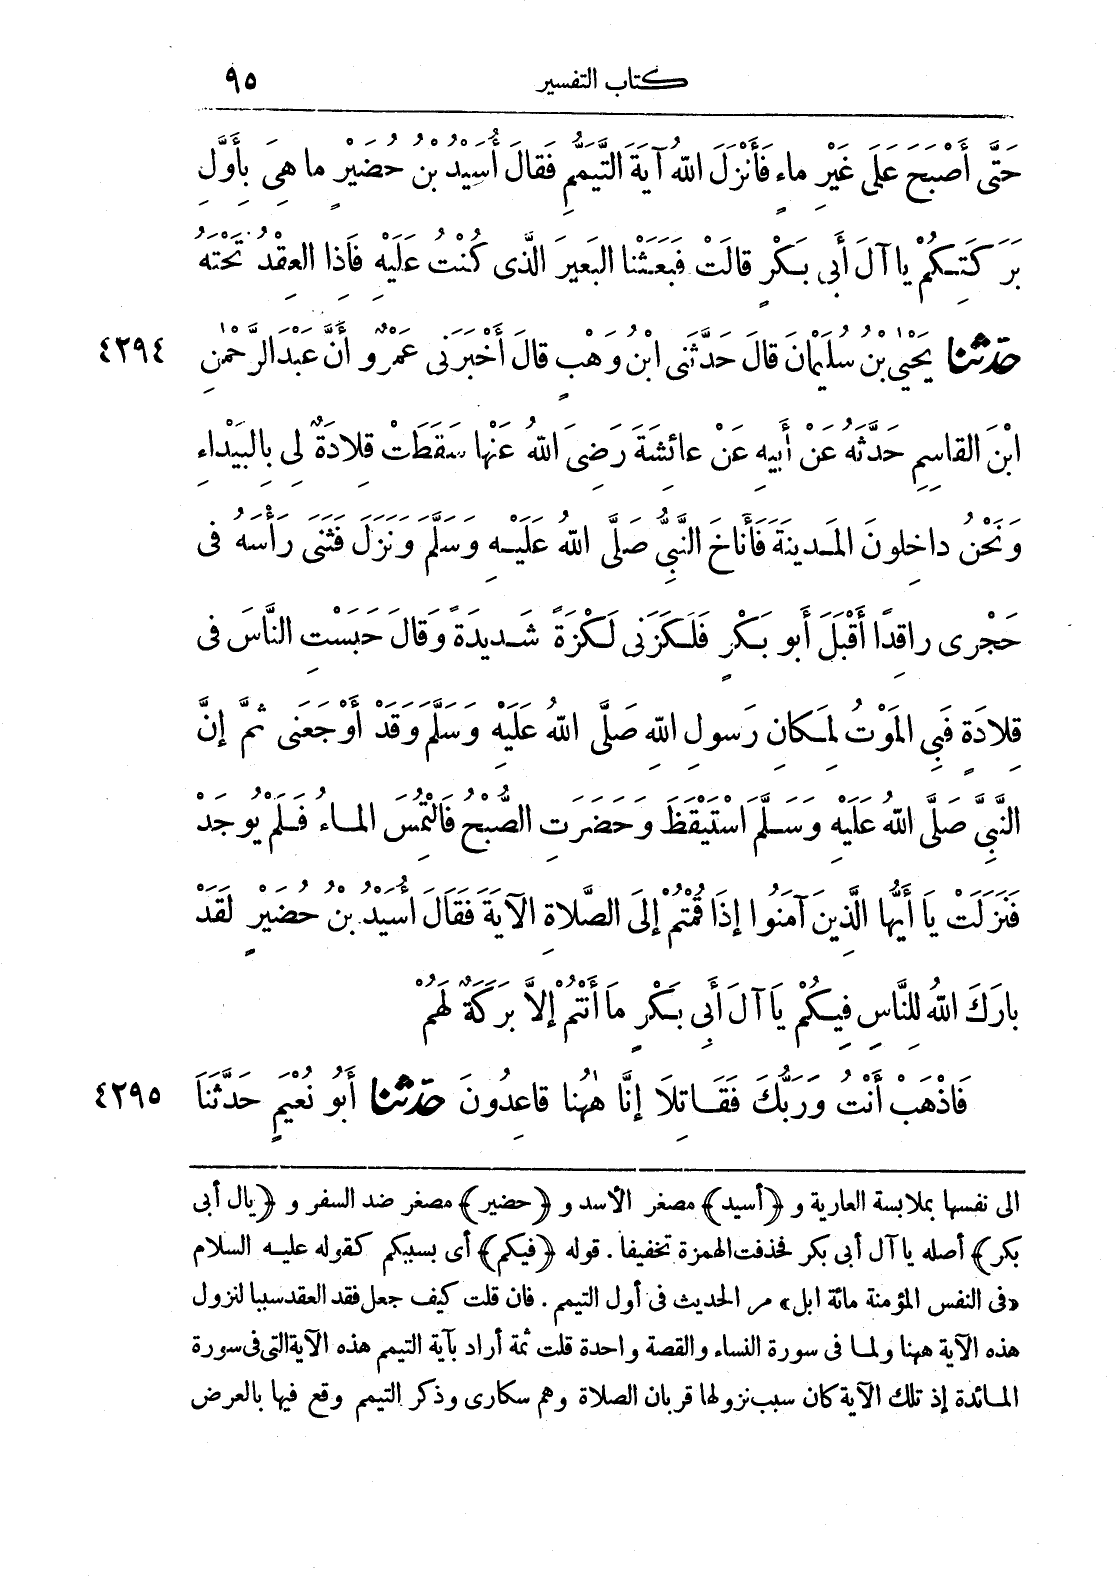 كتاب التفسير ٩٥
حَتَّى أَصْبَحَ عَلَى غَيْرِ ماءٍ فَأَنْزَلَ اللهُ آيَةَ التَّيَمُّمِ فَقالَ أُسَيْدُ بْنُ حُضَيْرٍ ما هِىَ بِأَوَّلِ
بَرَكَتِكُمْ يا آلَ أَبِى بَكْرٍ قالَتْ فَبَعَثْنا البَعِيرَ الَّذى كُنْتُ عَلَيْهِ فَاذا العِقْدُ تَحْتَهُ
٤٢٩٤ حدّثنا يَحْيٰى بْنُ سُلَيْمانَ قالَ حَدَّثَنِى ابْنُ وَهْبٍ قالَ أَخْبَرَنِى عَمْرٌو أَنَّ عَبْدَ الرَّحْمٰنِ
ابْنَ القاسِمِ حَدَّثَهُ عَنْ أَبِيهِ عَنْ عائِشَةَ رَضِىَ اللهُ عَنْها سَقَطَتْ قِلادَةٌ لِى بِالبَيْداءِ
وَنَحْنُ داخِلونَ المَدينَةَ فَأَناخَ النَّبِىُّ صَلَّى اللهُ عَلَيْهِ وَسَلَّمَ وَنَزَلَ فَثَنَى رَأْسَهُ فى
حَجْرِى راقِدًا أَقْبَلَ أَبو بَكْرٍ فَلَكَزَنى لَكْزَةً شَديدَةً وَقالَ حَبَسْتِ النَّاسَ فى
قِلادَةٍ فَبِى المَوْتُ لِمَكانِ رَسولِ اللهِ صَلَّى اللهُ عَلَيْهِ وَسَلَّمَ وَقَدْ أَوْجَعَنى ثُمَّ إنَّ
النَّبِىَّ صَلَّى اللهُ عَلَيْهِ وَسَلَّمَ اسْتَيْقَظَ وَحَضَرَتِ الصُّبْحُ فَالْتُمِسَ الماءُ فَلَمْ يُوجَدْ
فَنَزَلَتْ يا أَيُّها الَّذِينَ آمَنُوا إذَا قُمْتُمْ إلَى الصَّلاةِ الآيَةَ فَقَالَ أُسَيْدُ بْنُ حُضَيْرٍ لَقَدْ
بارَكَ اللهُ لِلنَّاسِ فِيكُمْ يَا آلَ أَبِى بَكْرٍ مَا أَنْتُمْ إلاَّ بَرَكَةٌ لَهُمْ
٤٢٩٥ فَاذْهَبْ أَنْتَ وَرَبُّكَ فَقَاتِلَا إنَّا هٰهُنا قاعِدُونَ حدّثنا أَبُو نُعَيْمٍ حَدَّثَنَا
الى نفسها بملابسة العارية و ﴿أسيد﴾ مصغر الأسد و ﴿حضير﴾ مصغر ضد السفر و ﴿يال أبى
بكر﴾ أصله يا آل أبى بكر فحذفت الهمزة تخفيفا . قوله ﴿فيكم﴾ أى بسببكم كقوله عليه السلام
«فى النفس المؤمنة مائة ابل» مر الحديث فى أول التيمم . فان قلت كيف جعل فقد العقد سببا لنزول
هذه الآية ههنا ولما فى سورة النساء والقصة واحدة قلت ثمة أراد بآية التيمم هذه الآية التى فى سورة
المائدة إذ تلك الآية كان سبب نزولها قربان الصلاة وهم سكارى وذكر التيمم وقع فيها بالعرض